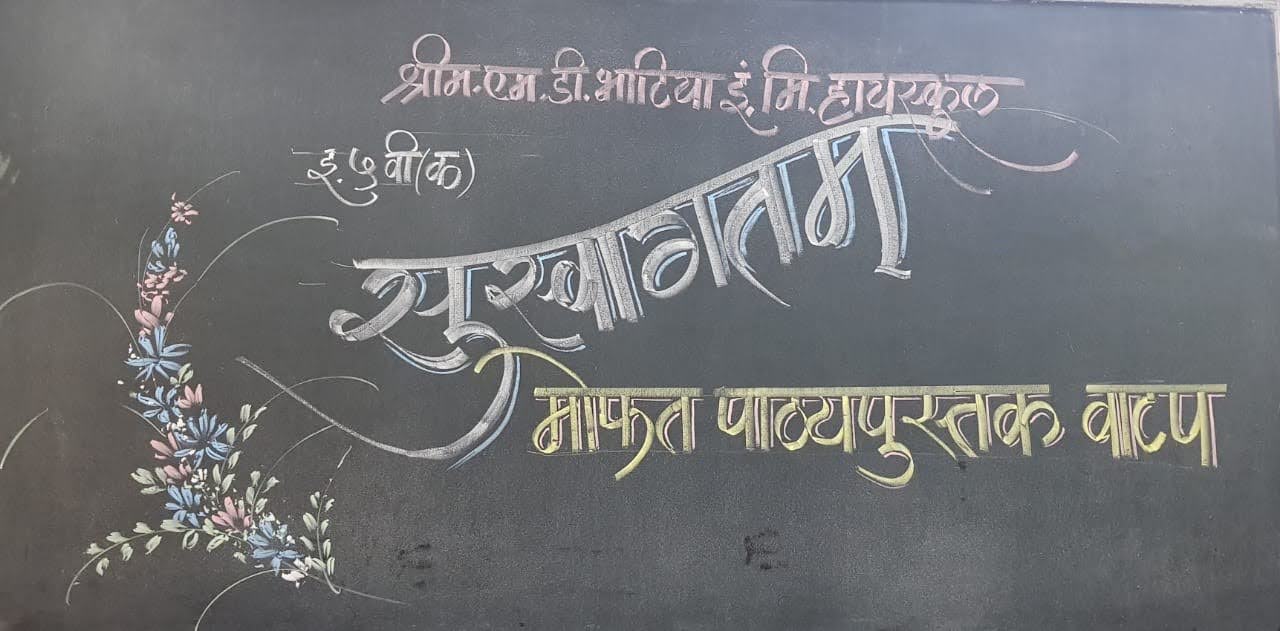 श्रीम.एम.डी.भाटिया इं.मि.हायस्कूल
इ.५ वी(क)
सुस्वागतम्
मोफत पाठ्यपुस्तक वाटप